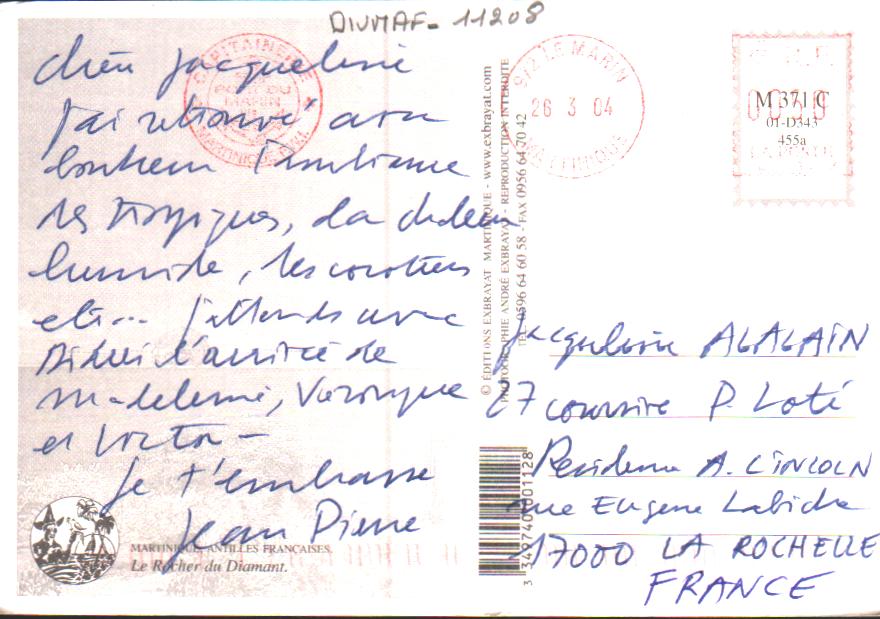 DIVMAF- 11208
Chère Jacqueline
J'ai retrouvé avec
bonheur l'ambiance
des tropiques, la chaleur
humide, les cocotiers
etc... J'attends avec
Didier l'arrivée de
Madeleine, Véronique
et Victor –
Je t'embrasse
Jean Pierre
MARTINIQUE, ANTILLES FRANÇAISES.
Le Rocher du Diamant.
CAPITAINERIE
PORT DU
MARIN
MARTINIQUE
© ÉDITIONS EXBRAYAT MARTINIQUE - www.exbrayat.com
PHOTOGRAPHIE ANDRÉ EXBRAYAT - REPRODUCTION INTERDITE
TEL 0596 64 60 58 - FAX 0956 64 70 42
3 349740 001128
972 LE MARIN
26 3 04
MARTINIQUE
M 371 C
01-D343
455a
LA POSTE
Jacqueline ALALAIN
27 coursive P. Loté
Résidence A. LINCOLN
rue Eugene Labiche
17000 LA ROCHELLE
FRANCE